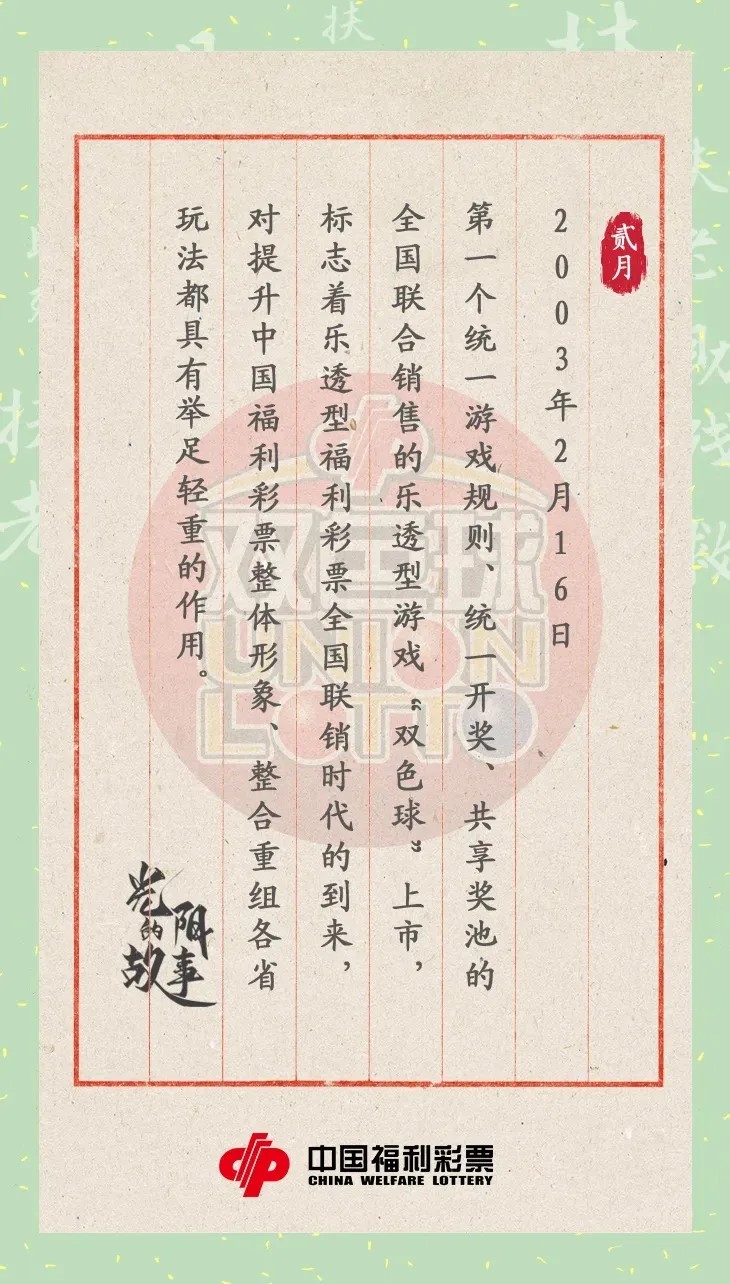 贰月
2003年2月16日
第一个统一游戏规则、统一开奖、共享奖池的
全国联合销售的乐透型游戏“双色球”上市，
标志着乐透型福利彩票全国联销时代的到来，
对提升中国福利彩票整体形象、整合重组各省
玩法都具有举足轻重的作用。
光阴的故事
双色球
UNION
LOTTO
中国福利彩票
CHINA WELFARE LOTTERY
扶